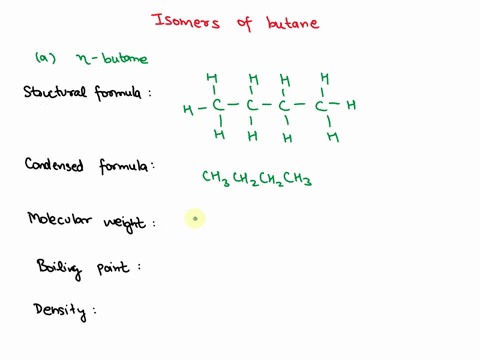 Isomers of butane
(a) n-butane
Structural formula:
H H H H
H - C - C - C - C - H
H H H H
Condensed formula:
CH₃CH₂CH₂CH₃
Molecular weight:
Boiling point:
Density: